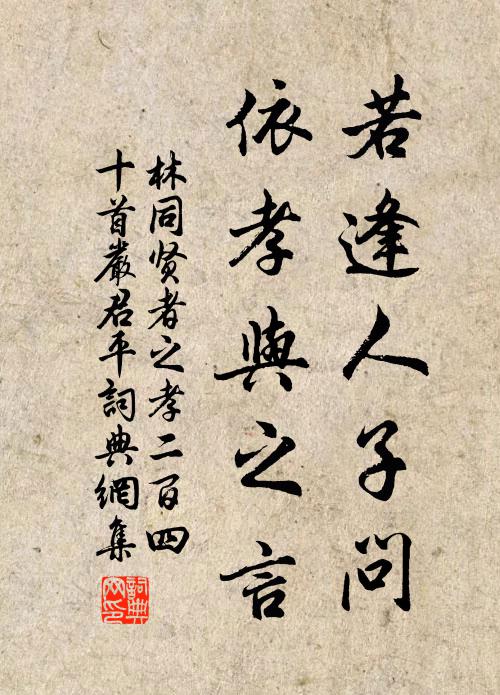 若逢人子問
依孝與之言
林同贤者之孝二百四
十首嚴君平詞典網集
詞典
网印